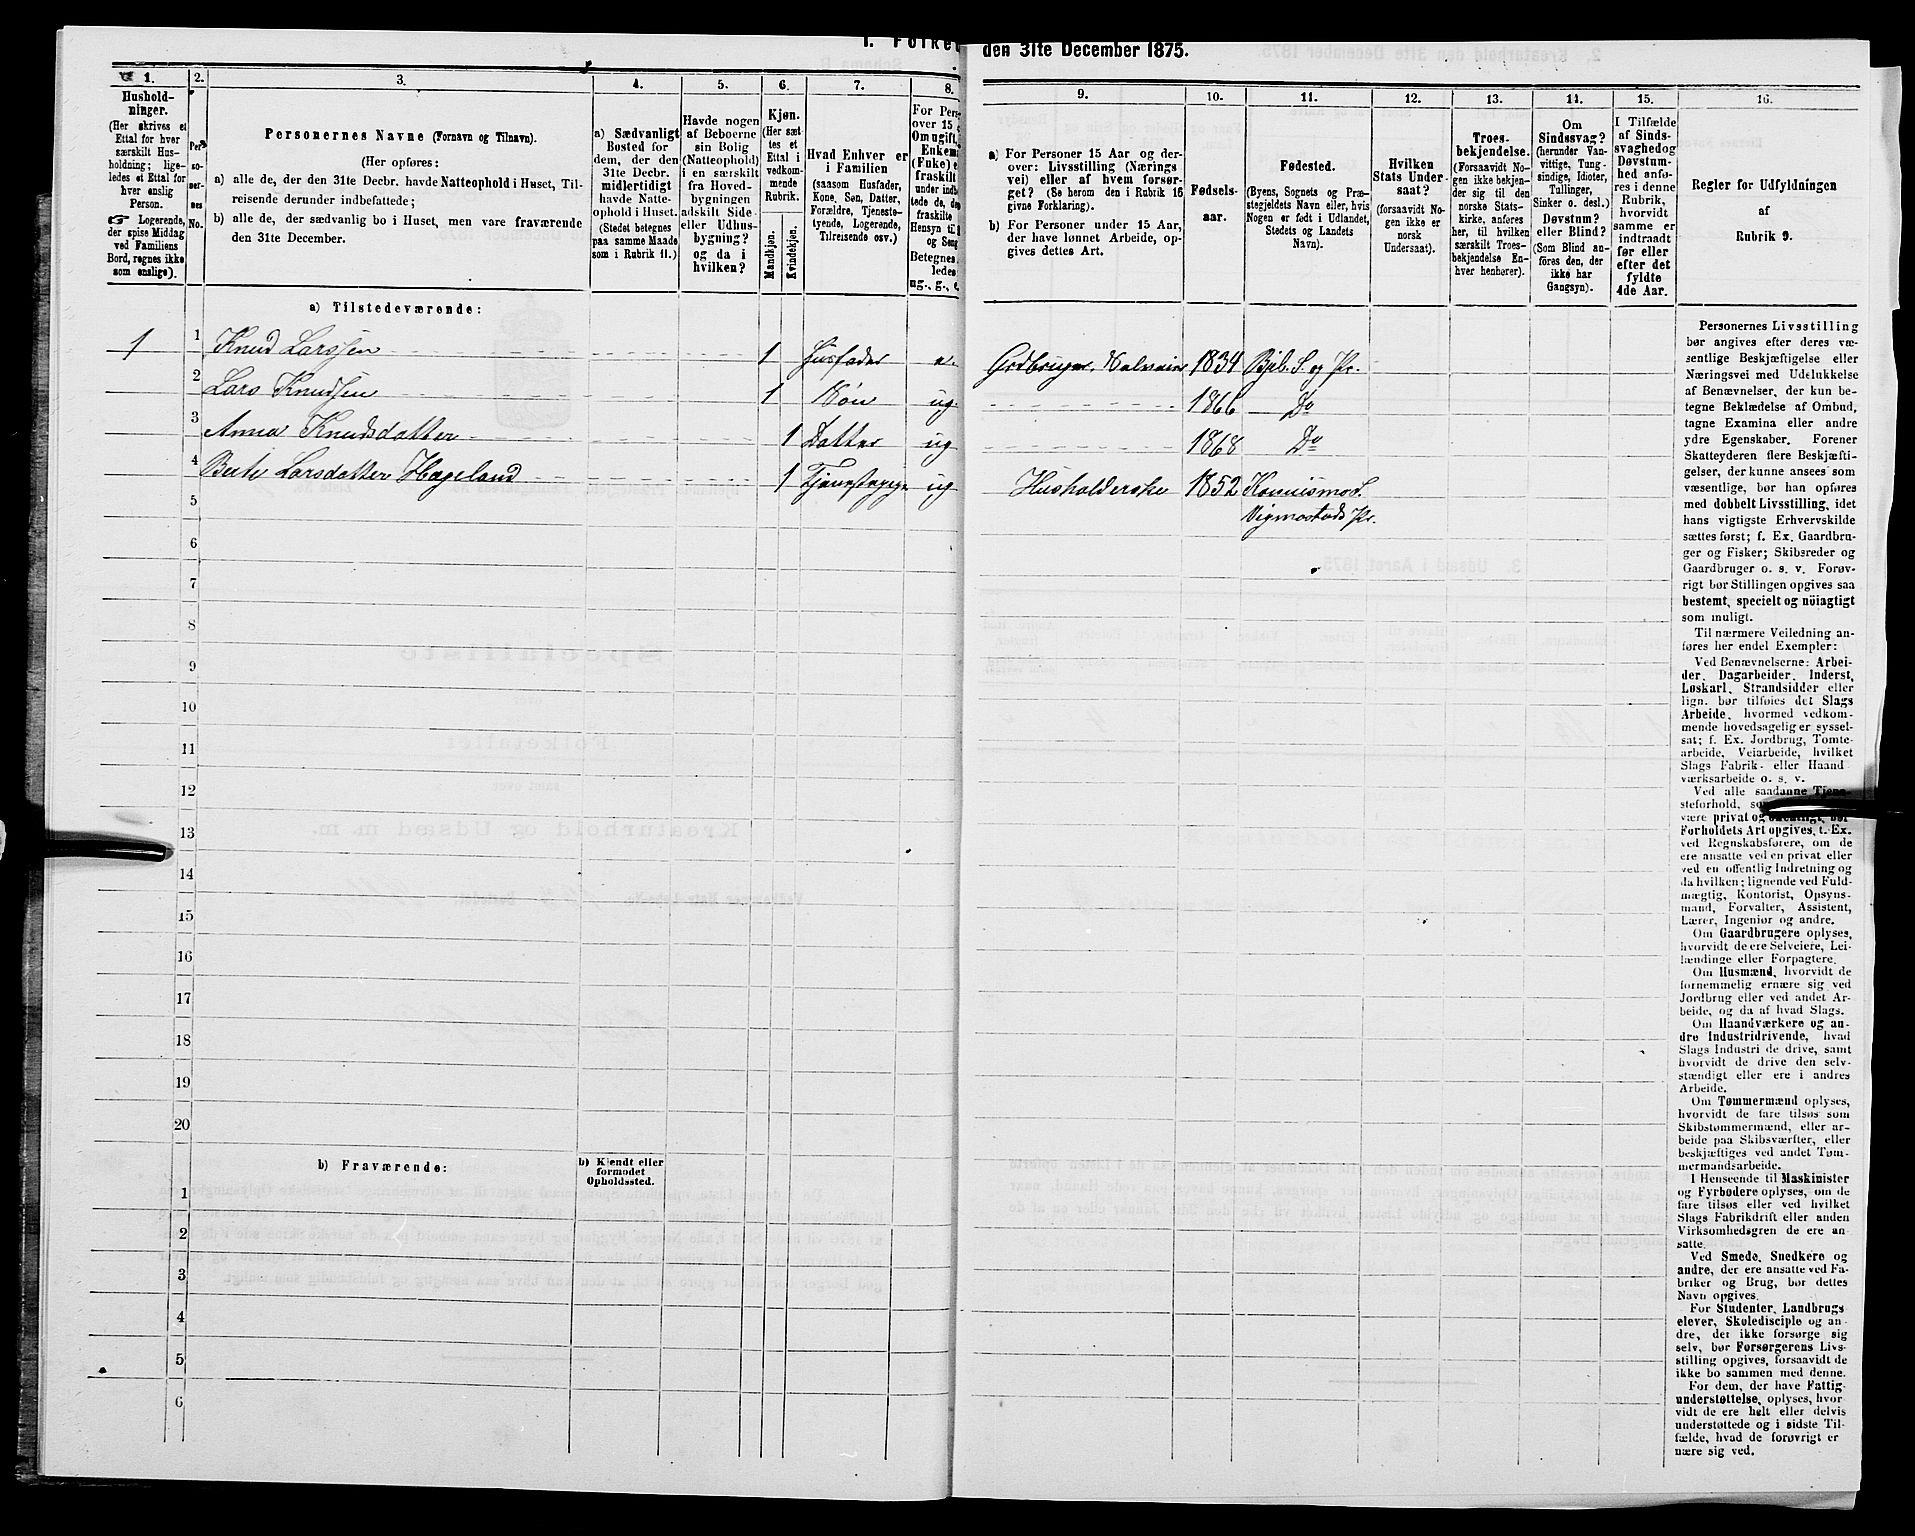 1. Folke
den 31te December 1875.
1.
2.
3.
4.
5.
6.
7.
8.
9.
10.
11.
12.
13.
14.
15.
16.
Hushold-
ninger.
(Her skrives et
Ettal for hver
særskilt Hus-
holdning; lige-
ledes et Ettal for
hver enslig
Person.
☞ Logerende,
der spise Middag
ved Familiens
Bord, regnes ikke
som enslige).
Per-
so-
ner-
nes
No.
Personernes Navne (Fornavn og Tilnavn).
(Her opføres:
a) alle de, der den 31te Decbr. havde Natteophold i Huset, Til-
reisende derunder indbefattede;
b) alle de, der sædvanlig bo i Huset, men vare fraværende
den 31te December.
a) Sædvanligt
Bosted for
dem, der den
31te Decbr.
midlertidigt
havde Natte-
ophold i Huset.
(Stedet betegnes
paa samme Maade
som i Rubrik 11.)
Havde nogen
af Beboerne
sin Bolig
(Natteophold)
i en særskilt
fra Hoved-
bygningen
adskilt Side-
eller Udhus-
bygning?
og da i
hvilken?
Kjøn.
(Her sæt-
tes et
Ettal i
vedkom-
mende
Rubrik.
Mandkjøn.
Kvindekjøn.
Hvad Enhver er
i Familien
(saasom Husfader,
Kone, Søn, Datter,
Forældre, Tjeneste-
tyende, Logerende,
Tilreisende osv.)
For Pers
over 15
Om ugift,
Enkem
(Fuke) e
fraskilt
under indb
tede de, de
fraskilte
Hensyn til
og Seng
Betegnes
ledes
ug., g., e.
a) For Personer 15 Aar og der-
over: Livsstilling (Nærings
vei) eller af hvem forsør-
get? (Se herom den i Rubrik 16
givne Forklaring).
b) For Personer under 15 Aar,
der have lønnet Arbeide, op-
gives dettes Art.
Fødsels-
aar.
Fødested.
(Byens, Sognets og Præ-
stegjeldets Navn eller, hvis
Nogen er født i Udlandet,
Stedets og Landets
Navn).
Hvilken
Stats Under-
saat?
(forsaavidt No-
gen ikke er
norsk
Undersaat).
Troes-
bekjendelse.
(Forsaavidt No-
gen ikke bekjen-
der sig til den
norske Stats-
kirke, anføres
her, til hvilken
særskilt Troes-
bekjendelse En-
hver henhører).
Om
Sindssvag?
(herunder Van-
vittige, Tung-
sindige, Idioter,
Tullinger,
Sinker o. desl.)
Døvstum?
eller Blind?
(Som Blind an-
føres den, der
ikke har
Gangsyn).
I Tilfælde
af Sinds-
svaghed og
Døvstum-
hed anfø-
res i denne
Rubrik,
hvorvidt
samme er
indtraadt
før eller
efter det
fyldte
4de Aar.
Regler for Udfyldningen
af
Rubrik 9.
a) Tilstedeværende:
1 1 Knud Larssen 1 Husfader e. Grdbruger Selveier 1834 Bjel. S. og Pr.
2 Lars Knudsen 1 Søn ug. 1866 Do
3 Anna Knudsdatter 1 Datter ug 1868 Do
4 Berte Larsdatter Hageland 1 ug Husholderske 1852 S.
5 Vigmostads Pr.
6
7
8
9
10
11
12
13
14
15
16
17
18
19
20
b) Fraværende:
b) Kjendt eller
formodet
Opholdssted.
1
2
3
4
5
6
Personernes Livsstilling
bør angives efter deres væ-
sentlige Beskjæftigelse eller
Næringsvei med Udelukkelse
af Benævnelser, der kun be-
tegne Beklædelse af Ombud,
tagne Examina eller andre
ydre Egenskaber. Forener
Skatteyderen flere Beskjæfti-
gelser, der kunne ansees som
væsentlige, bør han opføres
med dobbelt Livsstilling, idet
hans vigtigste Erhvervskilde
sættes først; f. Ex. Gaardbru-
ger og Fisker; Skibsreder og
Gaardbruger o. s. v. Forøv-
rigt bør Stillingen opgives saa
bestemt, specielt og nöiagtigt
som muligt.
Til nærmere Veiledning an-
føres her endel Exempler:
Ved Benævnelserne: Arbei-
der, Dagarbeider, Inderst,
Løskarl, Strandsidder eller
lign. bør tilføies det Slags
Arbeide, hvormed vedkom-
mende hovedsagelig er syssel-
sat; f. Ex. Jordbrug, Tomte-
arbeide, Veiarbeide, hvilket
Slags Fabrik- eller Haand
værksarbeide o. s. v.
Ved alle saadanne Tjene-
steforhold,
være privat og offentligt, bør
Forholdets Art opgives, t. Ex.
ved Regnskabsførere, om de
ere ansatte ved en privat eller
ved en offentlig Indretning og
da hvilken; lignende ved Fuld-
mægtig, Kontorist, Opsyns-
mand, Forvalter, Assistent,
Lærer, Ingeniør og andre.
Om Gaardbrugere oplyses,
hvorvidt de ere Selveiere, Lei-
lændinge eller Forpagtere.
Om Husmænd, hvorvidt de
fornemmelig ernære sig ved
Jordbrug eller ved andet Ar-
beide, og da af hvad Slags.
Om Haandværkere og an-
dre Industridrivende, hvad
Slags Industri de drive, samt
hvorvidt de drive den selv-
stændigt eller ere i andres
Arbeide.
Om Tømmermænd oplyses,
hvorvidt de fare tilsøs som
Skibstømmermænd, eller ar-
beide paa Skibsværfter, eller
beskjæftiges ved andet Tøm-
mermandsarbeide.
I Henseende til Maskinister
og Fyrbødere oplyses, om de
fare tilsøs eller ved hvilket
Slags Fabrikdrift eller anden
Virksomhedsgren de ere an-
satte.
Ved Smede, Snedkere og
andre, der ere ansatte ved Fa-
briker og Brug, bør dettes
Navn opgives.
For Studenter, Landbrugs
elever, Skoledisciple og an-
dre, der ikke forsørge sig
selv, bør Forsørgerens Livs-
stilling opgives, forsaavidt de
ikke bo sammen med denne.
For dem, der have Fattig-
understøttelse, oplyses, hvor-
vidt de ere helt eller delvis
understøttede og i sidste Til-
fælde, hvad de forøvrigt er
nære sig ved.